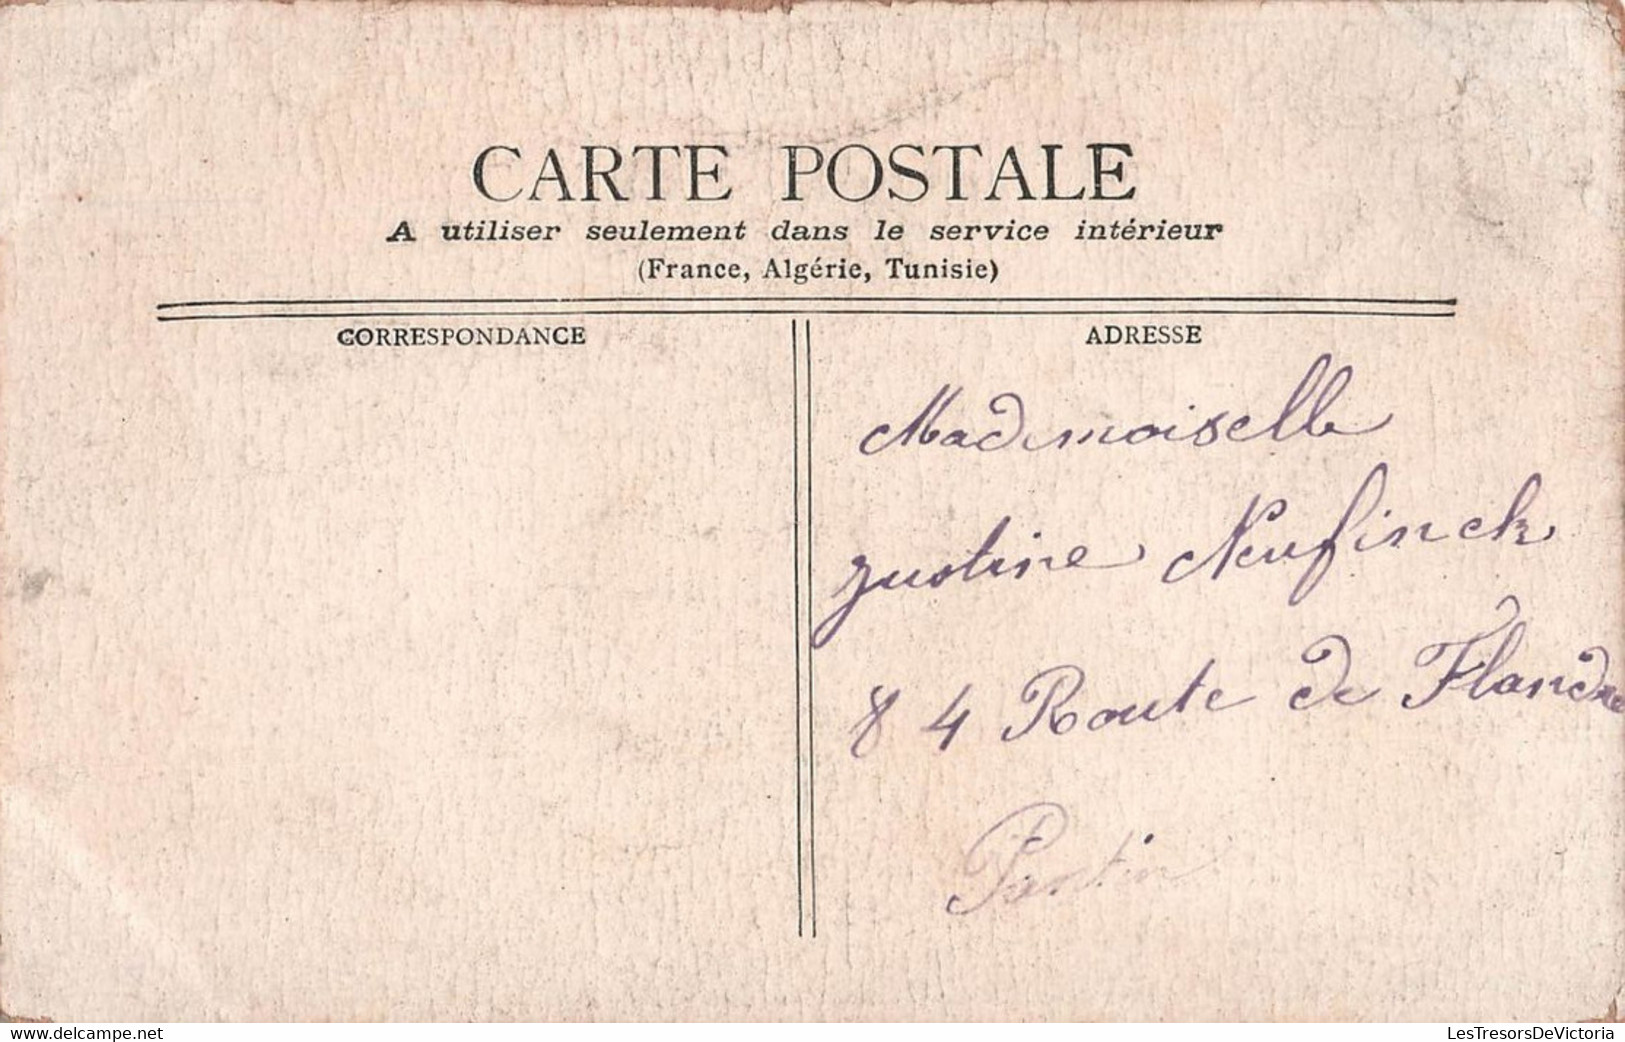 CARTE POSTALE
A utiliser seulement dans le service intérieur
(France, Algérie, Tunisie)
CORRESPONDANCE
ADRESSE
Mademoiselle
Justine Neufinck
84 Route de Flandre
Pantin
delcampe.net
LesTresorsDeVictoria